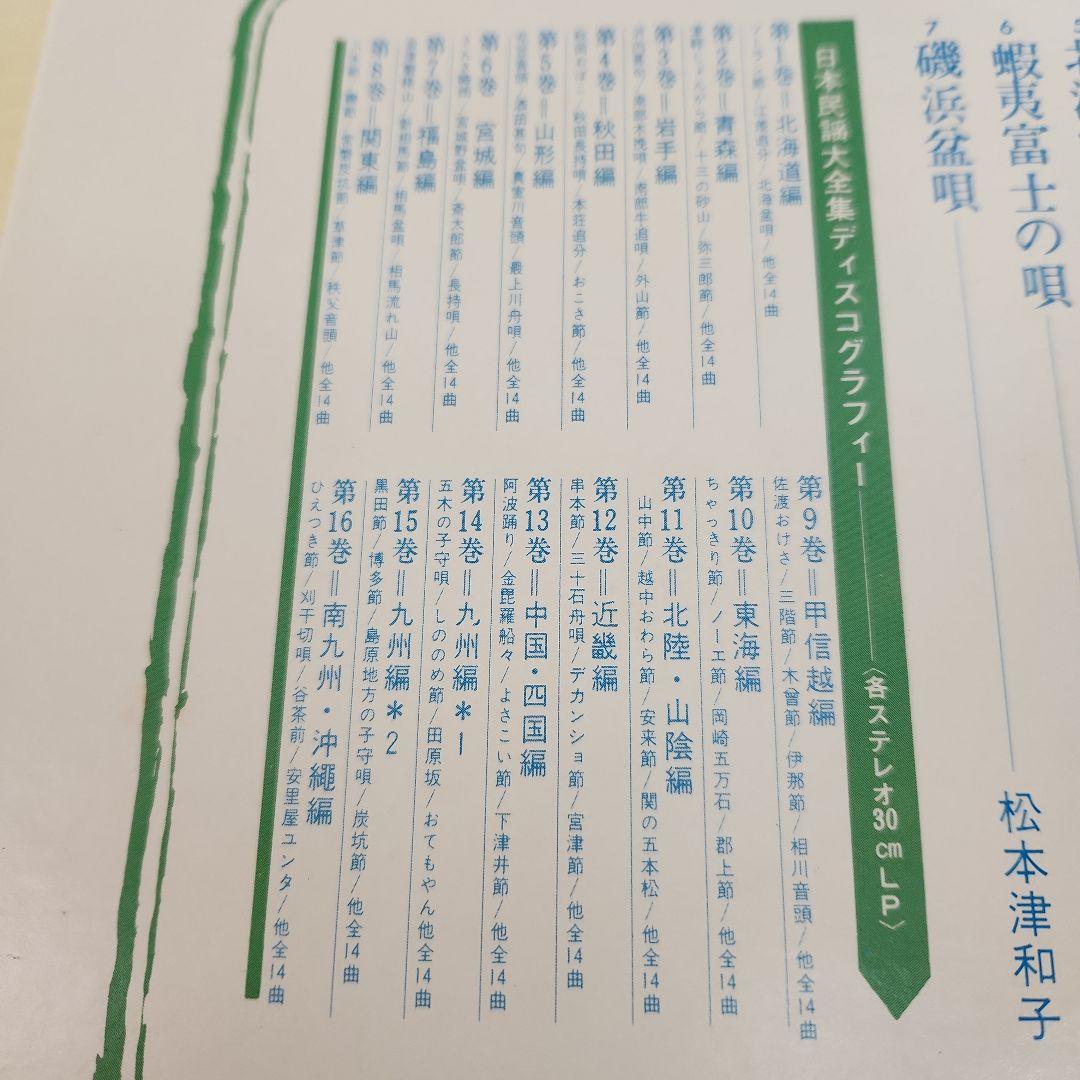 6 蝦夷富士の唄
7 磯浜盆唄
松本津和子
日本民謡大全集ディスコグラフィー——〈各ステレオ30cmLP〉
第1巻＝北海道編
ソーラン節/江差追分/北海盆唄/他全14曲
第2巻＝青森編
津軽じょんから節/十三の砂山/弥三郎節/他全14曲
第3巻＝岩手編
沢内甚句/南部木挽唄/南部牛追唄/外山節/他全14曲
第4巻＝秋田編
秋田おばこ/秋田長持唄/本荘追分/おこさ節/他全14曲
第5巻＝山形編
酒田甚句/真室川音頭/最上川舟唄/他全14曲
第6巻 宮城編
さんさ時雨/宮城野盆唄/斎太郎節/長持唄/他全14曲
第7巻＝福島編
会津磐梯山/新相馬節/相馬盆唄/相馬流れ山/他全14曲
第8巻＝関東編
常磐炭坑節/草津節/秩父音頭/他全14曲
第9巻＝甲信越編
佐渡おけさ/三階節/木曾節/伊那節/相川音頭/他全14曲
第10巻＝東海編
ちゃっきり節/ノーエ節/岡崎五万石/郡上節/他全14曲
第11巻＝北陸・山陰編
山中節/越中おわら節/安来節/関の五本松/他全14曲
第12巻＝近畿編
串本節/三十石舟唄/デカンショ節/宮津節/他全14曲
第13巻＝中国・四国編
阿波踊り/金毘羅船々/よさこい節/下津井節/他全14曲
第14巻＝九州編＊1
五木の子守唄/しののめ節/田原坂/おてもやん他全14曲
第15巻＝九州編＊2
黒田節/博多節/島原地方の子守唄/炭坑節/他全14曲
第16巻＝南九州・沖縄編
ひえつき節/刈干切唄/谷茶前/安里屋ユンタ/他全14曲